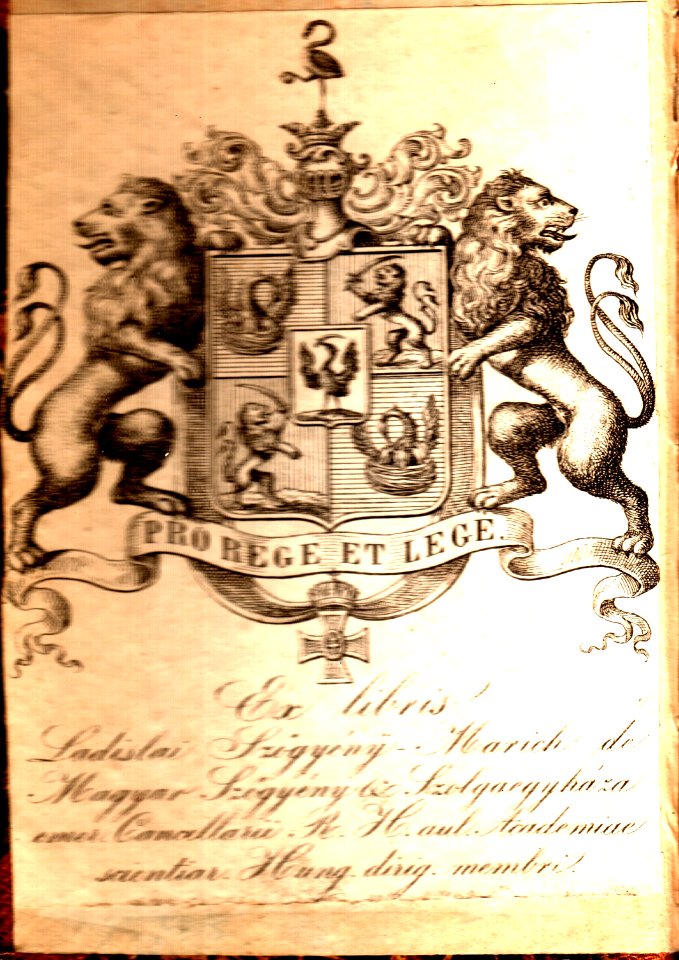 PRO REGE ET LEGE.
Ex libris
Ladislai Szögyény-Marich de
Magyar Szögyény & Szolgaegyháza
emer. Cancellarii R. H. aul. Academiae
scientiar. Hung. dirig. membri.